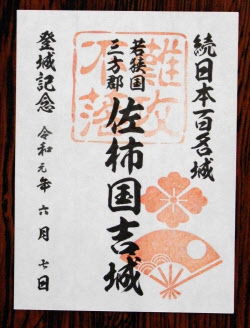 続日本百名城
若狭国
三方郡
佐柿国吉城
難攻
不落
登城記念
令和元年六月七日